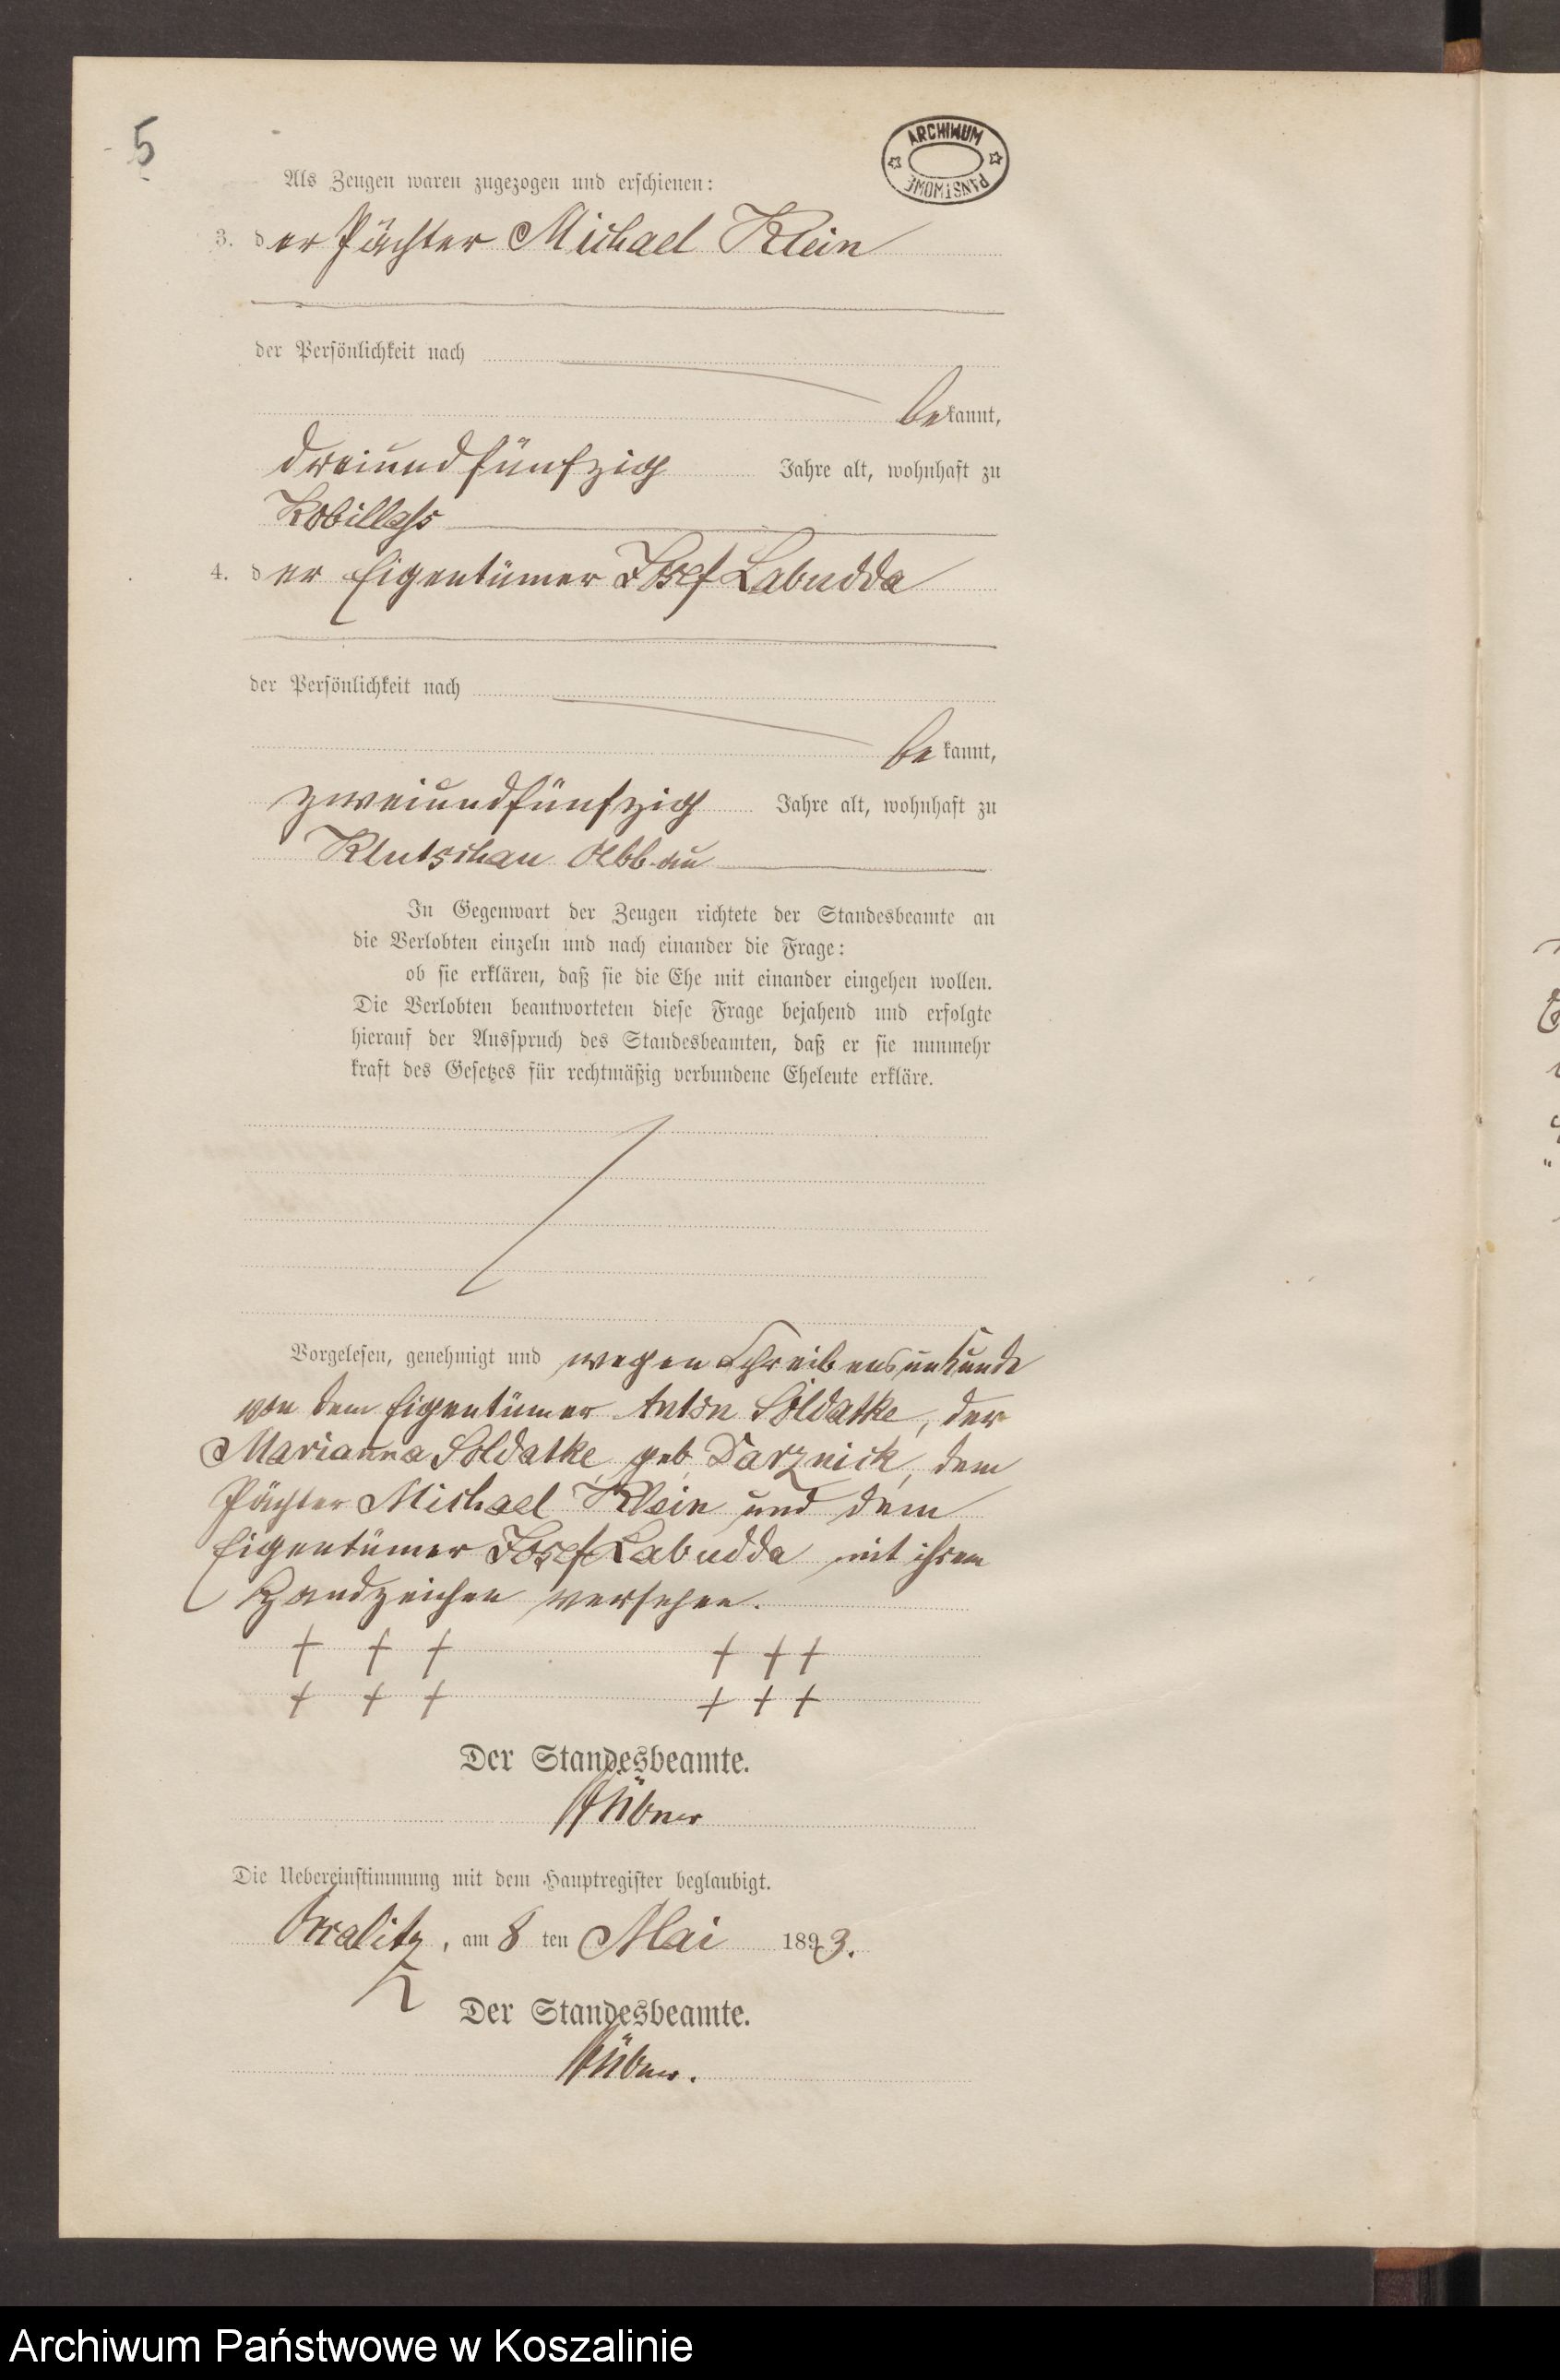 5
ARCHIWUM PAŃSTWOWE
Als Zeugen waren zugezogen und erschienen:
3. der Pächter Michael Klein
der Persönlichkeit nach
bekannt,
dreiundfünfzig Jahre alt, wohnhaft zu
Kobillass
4. der Eigentümer Josef Labudda
der Persönlichkeit nach
bekannt,
zweiundfünfzig Jahre alt, wohnhaft zu
Klutschau Abbau
In Gegenwart der Zeugen richtete der Standesbeamte an
die Verlobten einzeln und nach einander die Frage:
ob sie erklären, daß sie die Ehe mit einander eingehen wollen.
Die Verlobten beantworteten diese Frage bejahend und erfolgte
hierauf der Ausspruch des Standesbeamten, daß er sie nunmehr
kraft des Gesetzes für rechtmäßig verbundene Eheleute erkläre.
Vorgelesen, genehmigt und wegen Schreibensunkunde
von dem Eigentümer Anton Soldatke, der
Marianna Soldatke geb. Darznick, dem
Pächter Michael Klein und dem
Eigentümer Josef Labudda mit ihren
Handzeichen versehen.
+ + + + + +
+ + + + + +
Der Standesbeamte.
Hübner
Die Uebereinstimmung mit dem Hauptregister beglaubigt.
am 8 ten Mai 1893.
Der Standesbeamte.
Hübner.
Archiwum Państwowe w Koszalinie